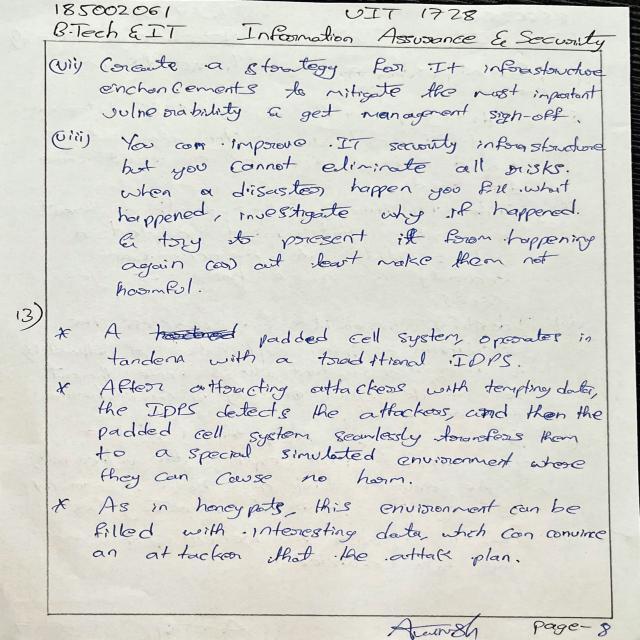 185002061 UIT 1728
B.Tech & IT Information Assurance & Security
(vii) Create a strategy for IT infrastructure
enchancements to mitigate the most important
vulnerability & get management sign-off.
(viii) You can improve IT security infrastructure
but you cannot eliminate all risks.
when a disaster happen you fix what
happened, investigate why it happened.
& try to present it from happening
again (or) at least make them not
harmful.
13)
* A padded cell system operates in
tandem with a traditional IDPS.
* After attracting attackers with tempting data,
the IDPS detects the attackers, and then the
padded cell system seamlessly transfers them
to a special simulated environment where
they can cause no harm.
* As in honeypots, this environment can be
filled with interesting data, which can convince
an attacker that the attack plan.
page-8